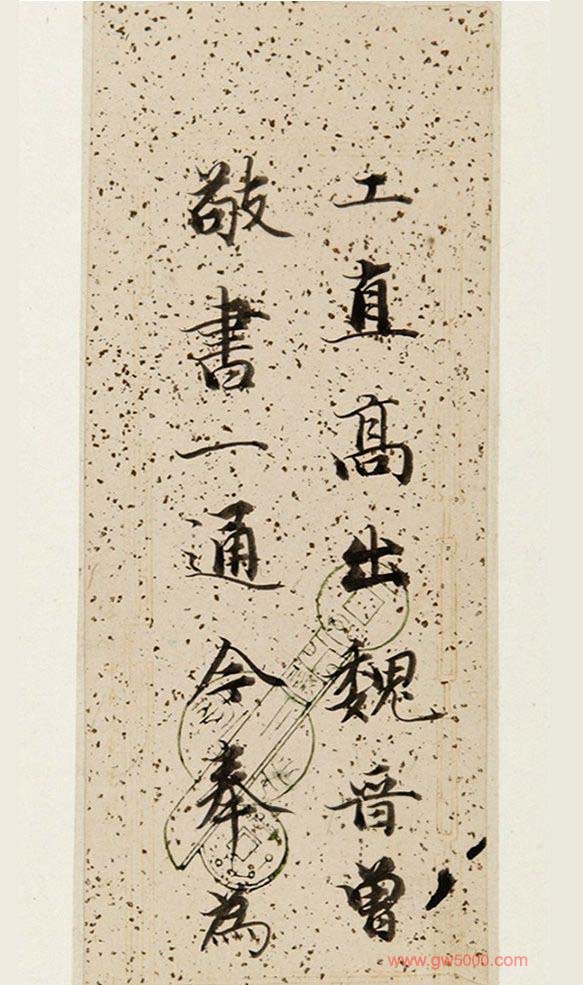 工直高出魏晋曾
敬书一通今奉为
www.gw5000.com